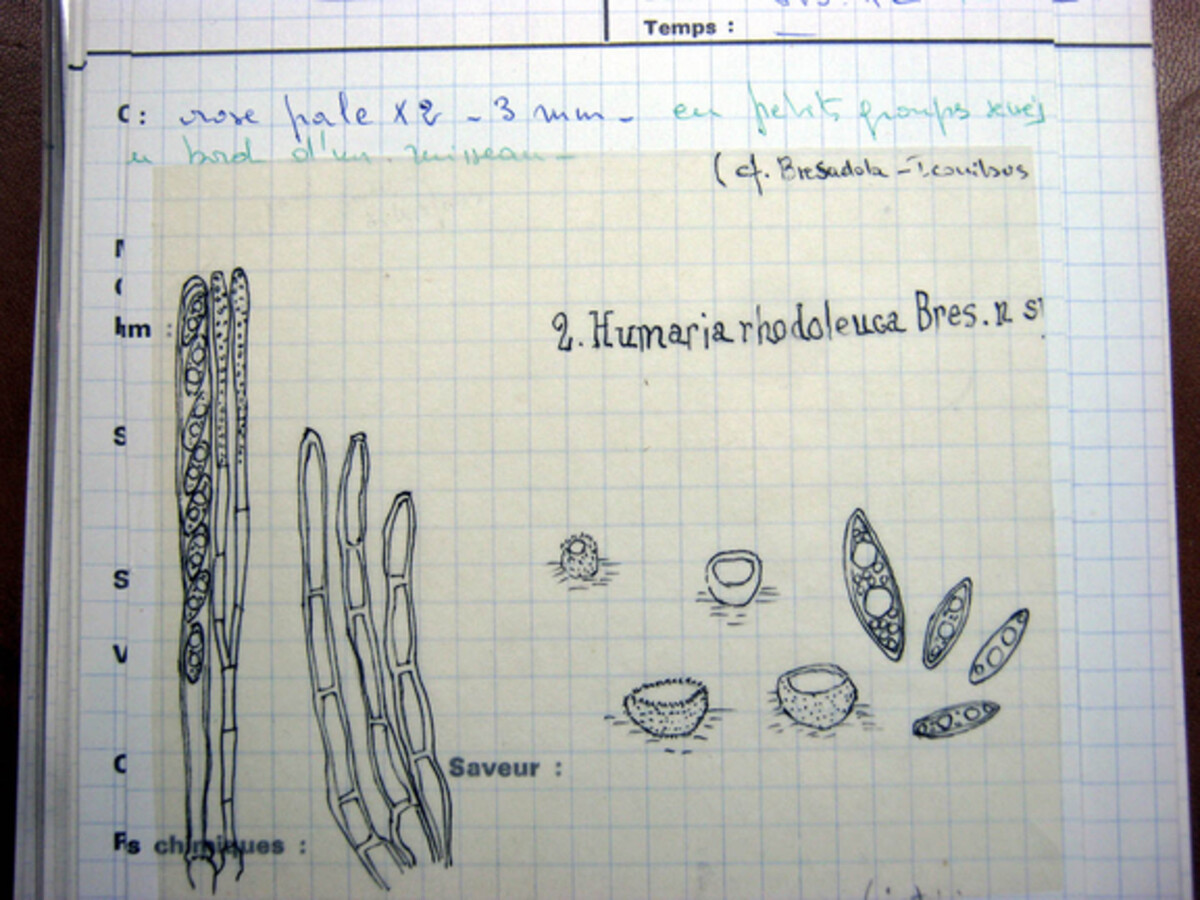 Temps :
C : rose pale x 2 - 3 mm - en petits groups
bord d'un ruisseau -
(cf. Bresadola -
hm :
2. Humaria rhodoleuca Bres. n s
S
S
V
C
Saveur :
Fs chimiques :